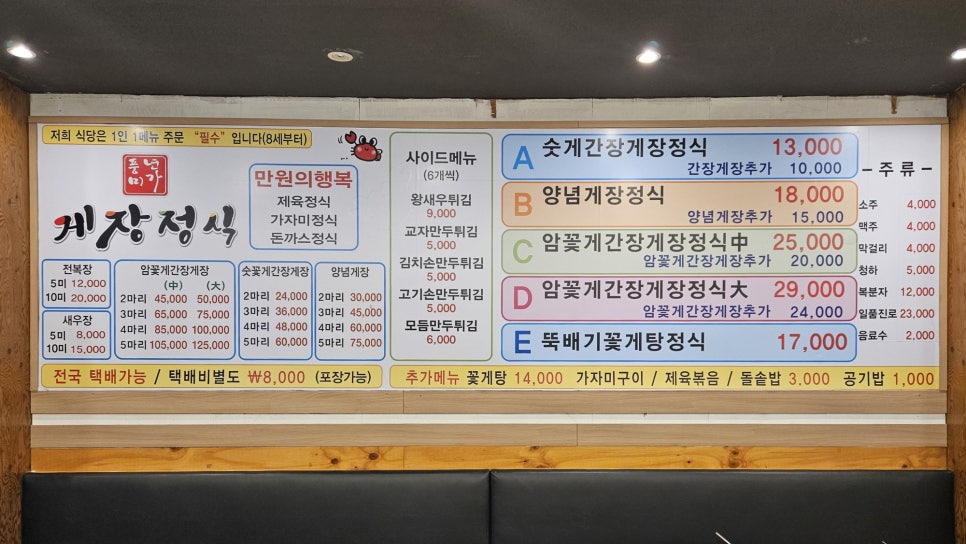 저희 식당은 1인 1메뉴 주문 "필수" 입니다(8세부터)
풍미
년가
게장정식
만원의행복
제육정식
가자미정식
돈까스정식
전복장
5미 12,000
10미 20,000
새우장
5미 8,000
10미 15,000
암꽃게간장게장
(中) (大)
2마리 45,000 50,000
3마리 65,000 75,000
4마리 85,000 100,000
5마리 105,000 125,000
숫꽃게간장게장
2마리 24,000
3마리 36,000
4마리 48,000
5마리 60,000
양념게장
2마리 30,000
3마리 45,000
4마리 60,000
5마리 75,000
전국 택배가능 / 택배비별도 ₩8,000 (포장가능)
사이드메뉴
(6개씩)
왕새우튀김
9,000
교자만두튀김
5,000
김치손만두튀김
5,000
고기손만두튀김
5,000
모듬만두튀김
6,000
A 숫게간장게장정식 13,000
간장게장추가 10,000
B 양념게장정식 18,000
양념게장추가 15,000
C 암꽃게간장게장정식中 25,000
암꽃게간장게장추가 20,000
D 암꽃게간장게장정식大 29,000
암꽃게간장게장추가 24,000
E 뚝배기꽃게탕정식 17,000
- 주 류 -
소주 4,000
맥주 4,000
막걸리 4,000
청하 5,000
복분자 12,000
일품진로 23,000
음료수 2,000
추가메뉴 꽃게탕 14,000 가자미구이 / 제육볶음 / 돌솥밥 3,000 공기밥 1,000